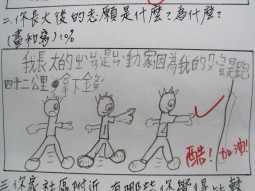 二、你長大後的志願是什麼？為什麼？
(畫和寫) 10%
我長大的出岩是當運動家因為我的好是跑
四十二公里，拿下金
酷！加油！
三、你家社區附近，有哪些你覺得比較